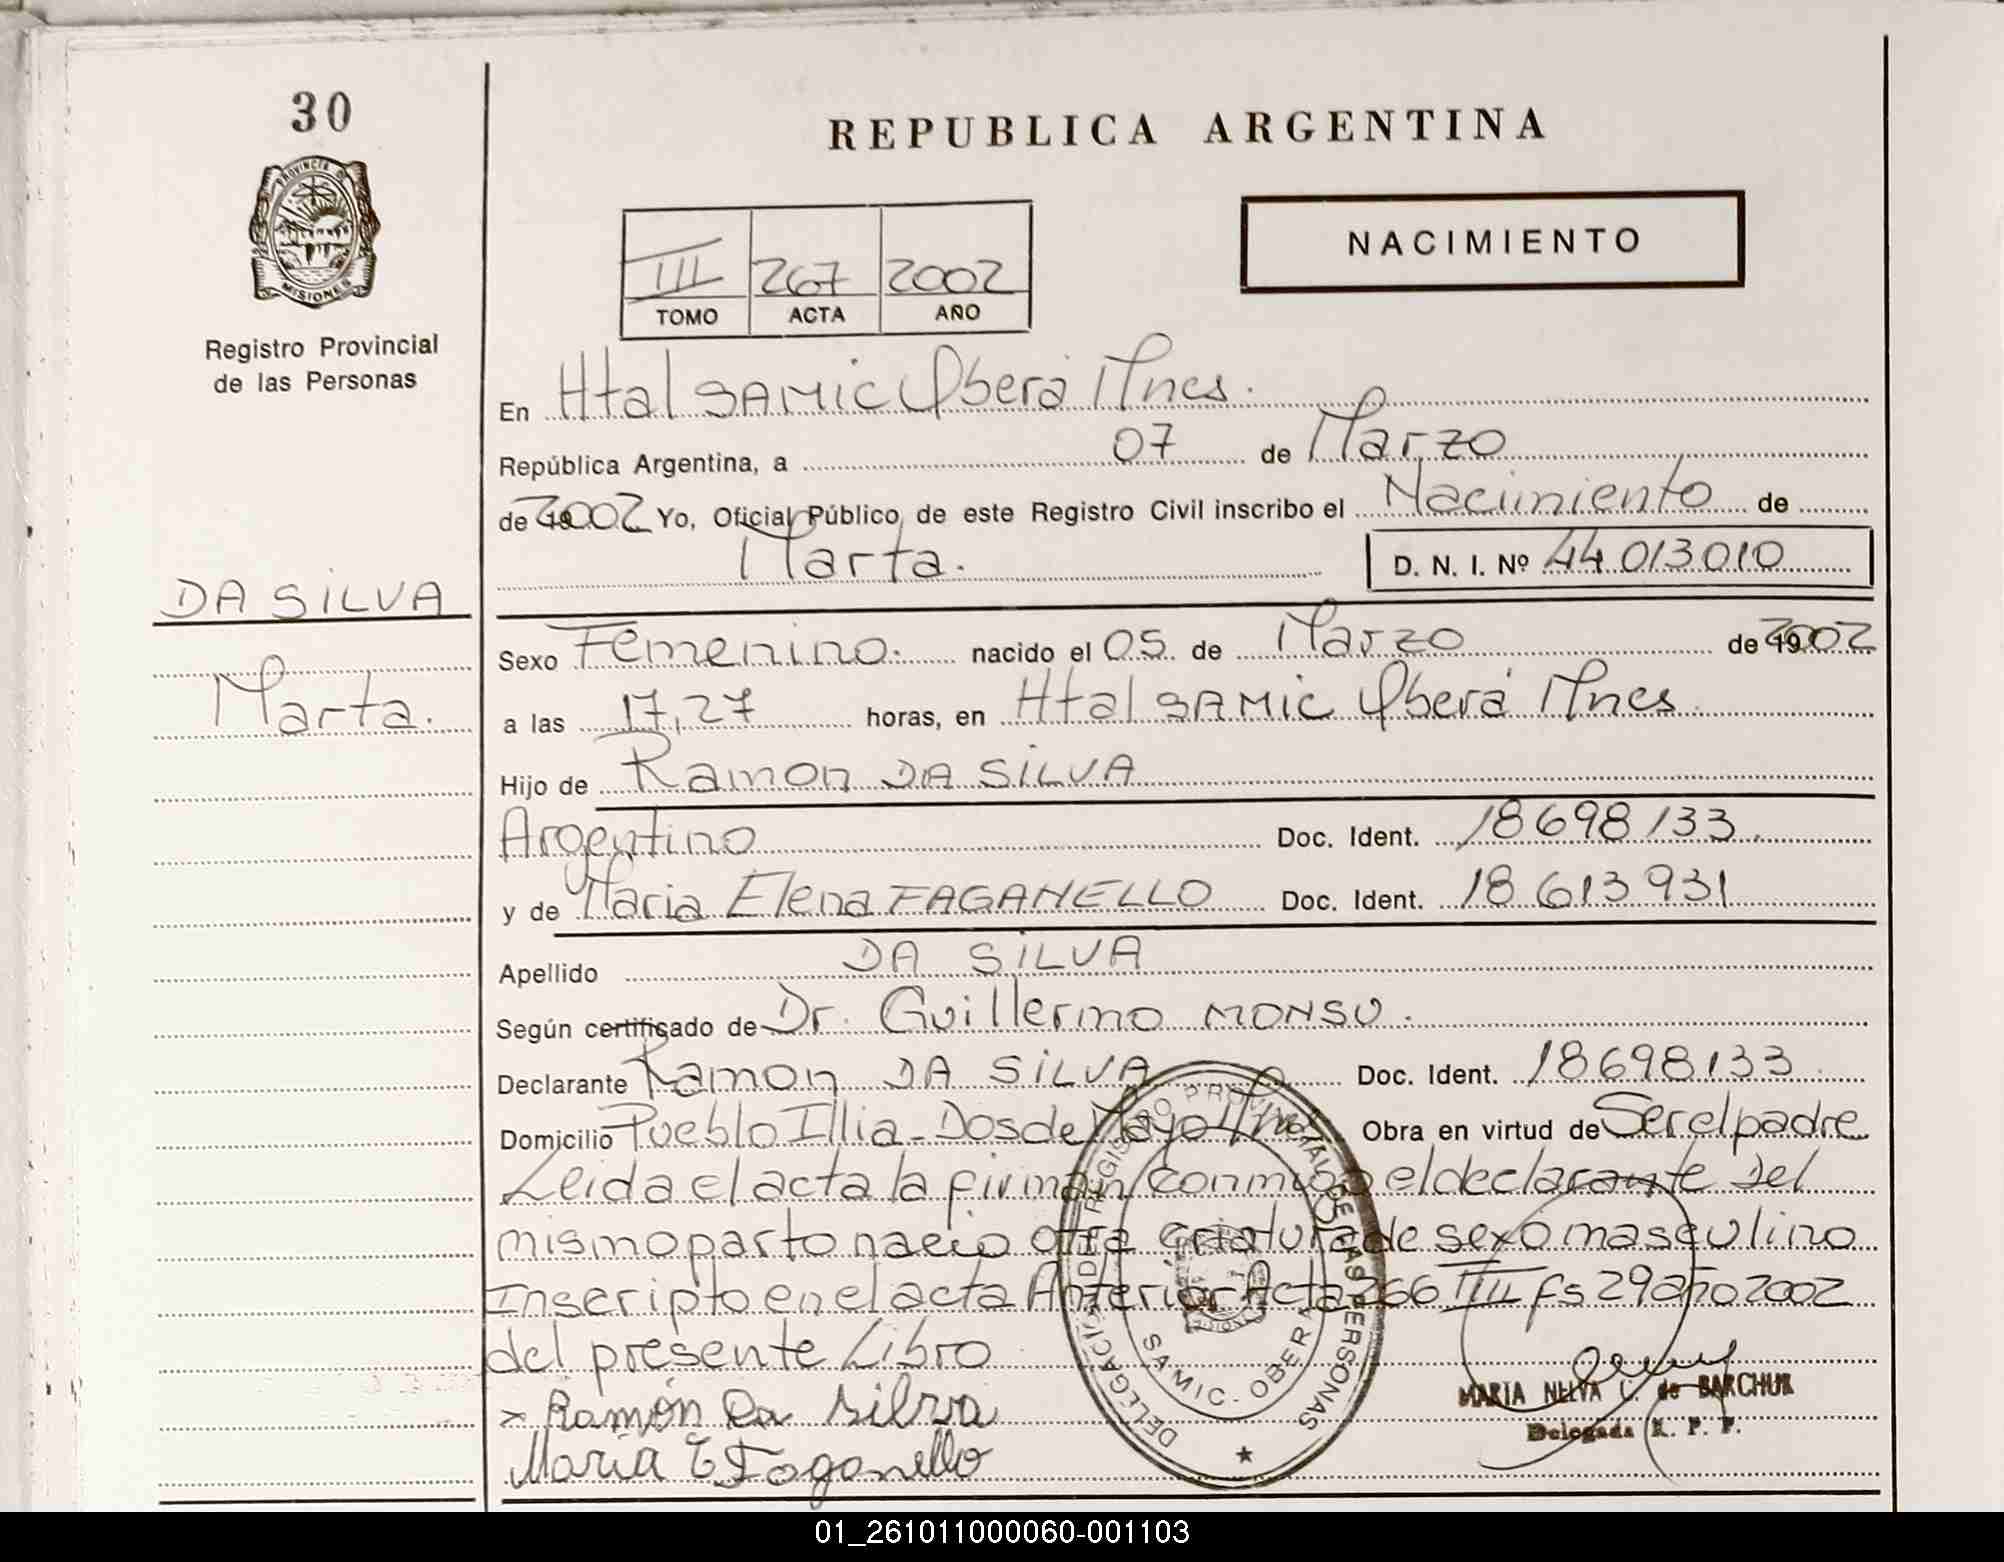 30
PROVINCIA DE
MISIONES
Registro Provincial
de las Personas
DA SILVA
Marta.
REPUBLICA ARGENTINA
NACIMIENTO
III 267 2002
TOMO ACTA AÑO
En Htal SAMIC Oberá Mnes.
República Argentina, a 07 de Marzo
de 2002 Yo, Oficial Público de este Registro Civil inscribo el Nacimiento de
Marta. D. N. I. Nº 44 013010
Sexo Femenino. nacido el 05 de Marzo de 2002
a las 17,27 horas, en Htal SAMIC Oberá Mnes
Hijo de Ramon DA SILVA
Argentino Doc. Ident. 18698133
y de Maria Elena FAGANELLO Doc. Ident. 18 613 931
Apellido DA SILVA
Según certificado de Dr. Guillermo MONSU.
Declarante Ramon DA SILVA Doc. Ident. 18698133
Domicilio Pueblo Illia - Dos de Mayo Mnes Obra en virtud de Ser el padre
Leida el acta la firman conmigo el declarante Del
mismo parto nacio otra criatura de sexo masculino
Inscripto en el acta Anterior Acta 266 fs 29 año 2002
del presente Libro
x Ramón Da Silva
Maria E Faganello
DELEGACION REGISTRO PROVINCIAL DE LAS PERSONAS
SAMIC. OBERA
MARIA NELVA C. de BARCHUK
Delegada R. P. P.
01_261011000060-001103